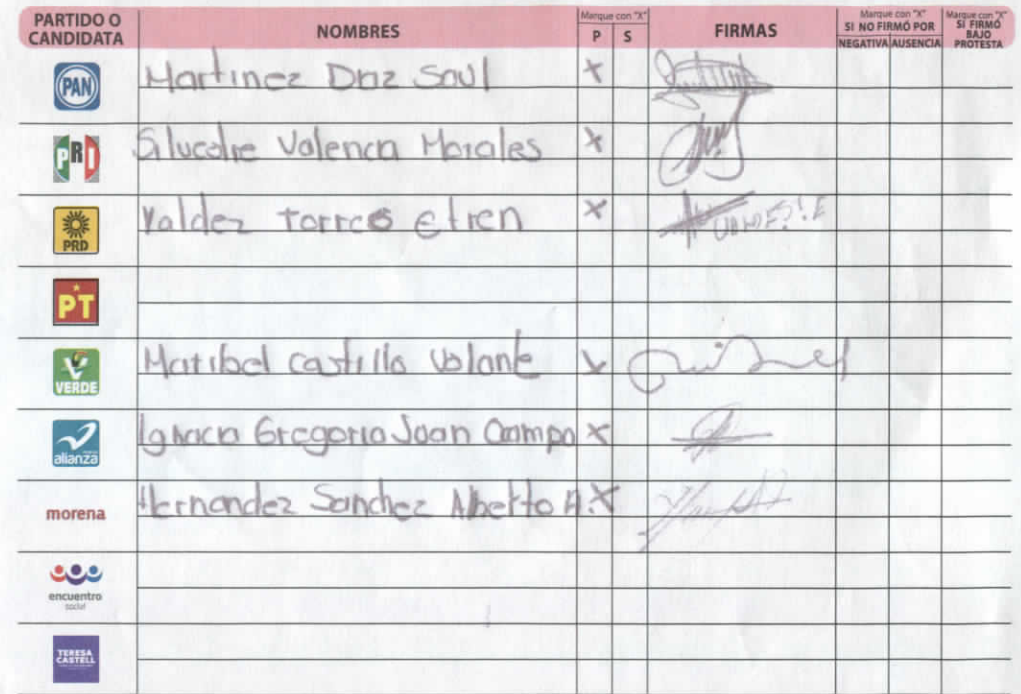 PARTIDO O CANDIDATA NOMBRES Marque con "X" P S FIRMAS Marque con "X" SI NO FIRMÓ POR NEGATIVA AUSENCIA Marque con "X" SI FIRMÓ BAJO PROTESTA
PAN Martinez Diaz Saul X
PRI Valencia Morales X
PRD Valdez Torres Efren X
PT
VERDE Maribel Castillo Volante X
alianza Ignacio Gregorio Juan Ocampo X
morena Hernandez Sanchez Alberto A. X
encuentro social
TERESA CASTELL